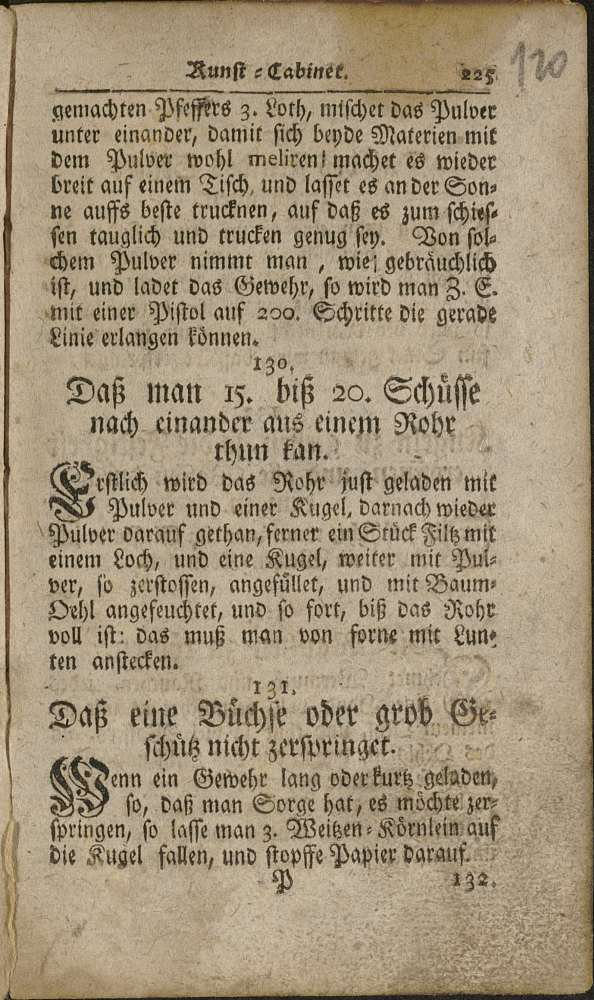 Kunst-Cabinet. 225
120
gemachten Pfeffers 3. Loth, mischet das Pulver
unter einander, damit sich beyde Materien mit
dem Pulver wohl meliren, machet es wieder
breit auf einem Tisch, und lasset es an der Son-
ne auffs beste trucknen, auf daß es zum schies-
sen tauglich und trucken genug sey. Von sol-
chem Pulver nimmt man, wie gebräuchlich
ist, und ladet das Gewehr, so wird man Z. E.
mit einer Pistol auf 200. Schritte die gerade
Linie erlangen können.
130.
Daß man 15. biß 20. Schüsse
nach einander aus einem Rohr
thun kan.
Erstlich wird das Rohr just geladen mit
Pulver und einer Kugel, darnach wieder
Pulver darauf gethan, ferner ein Stück Filtz mit
einem Loch, und eine Kugel, weiter mit Pul-
ver, so zerstossen, angefüllet, und mit Baum-
Oehl angefeuchtet, und so fort, biß das Rohr
voll ist: das muß man von forne mit Lun-
ten anstecken.
131.
Daß eine Büchse oder grob Ge-
schütz nicht zerspringet.
Wenn ein Gewehr lang oder kurtz geladen,
so, daß man Sorge hat, es möchte zer-
springen, so lasse man 3. Weitzen-Körnlein auf
die Kugel fallen, und stopffe Papier darauf.
P 132.